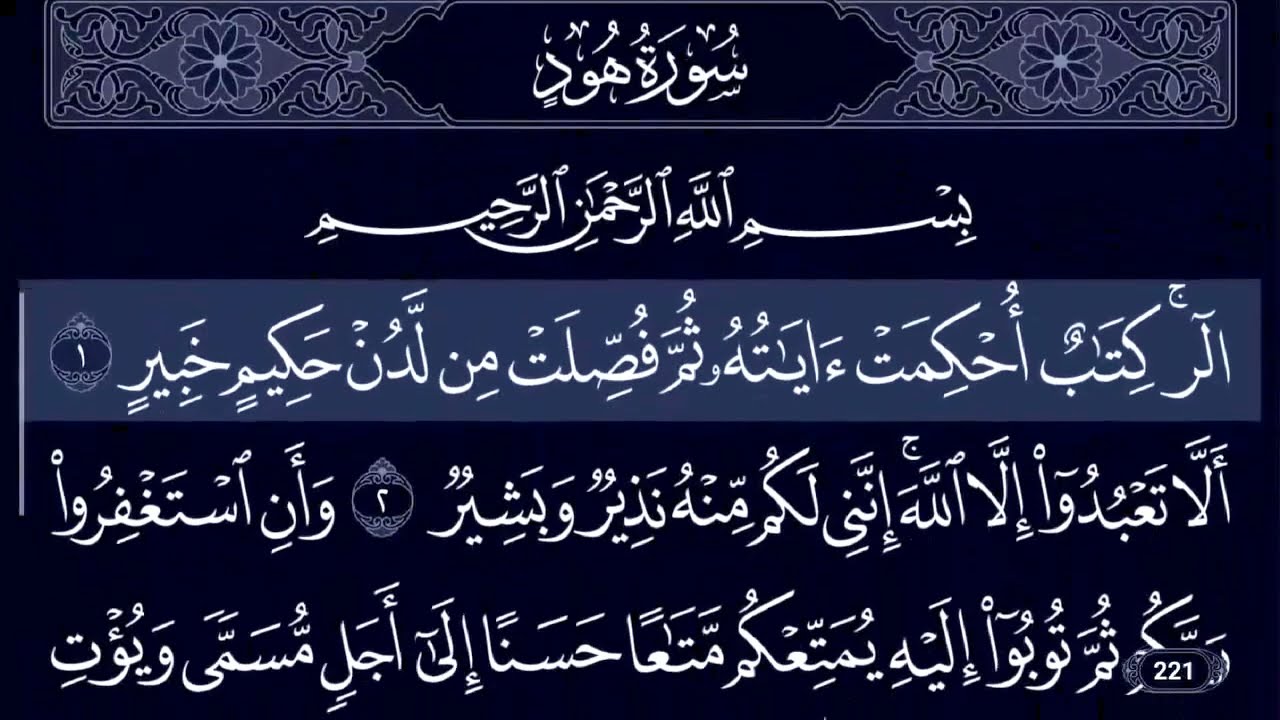 سُورَةُ هُودٍ
بِسْمِ ٱللَّهِ ٱلرَّحْمَٰنِ ٱلرَّحِيمِ
الٓرۚ كِتَٰبٌ أُحْكِمَتْ ءَايَٰتُهُۥ ثُمَّ فُصِّلَتْ مِن لَّدُنْ حَكِيمٍ خَبِيرٍ ١
أَلَّا تَعْبُدُوٓا۟ إِلَّا ٱللَّهَۚ إِنَّنِى لَكُم مِّنْهُ نَذِيرٌ وَبَشِيرٌ ٢ وَأَنِ ٱسْتَغْفِرُوا۟
رَبَّكُمْ ثُمَّ تُوبُوٓا۟ إِلَيْهِ يُمَتِّعْكُم مَّتَٰعًا حَسَنًا إِلَىٰٓ أَجَلٍ مُّسَمًّى وَيُؤْتِ
221